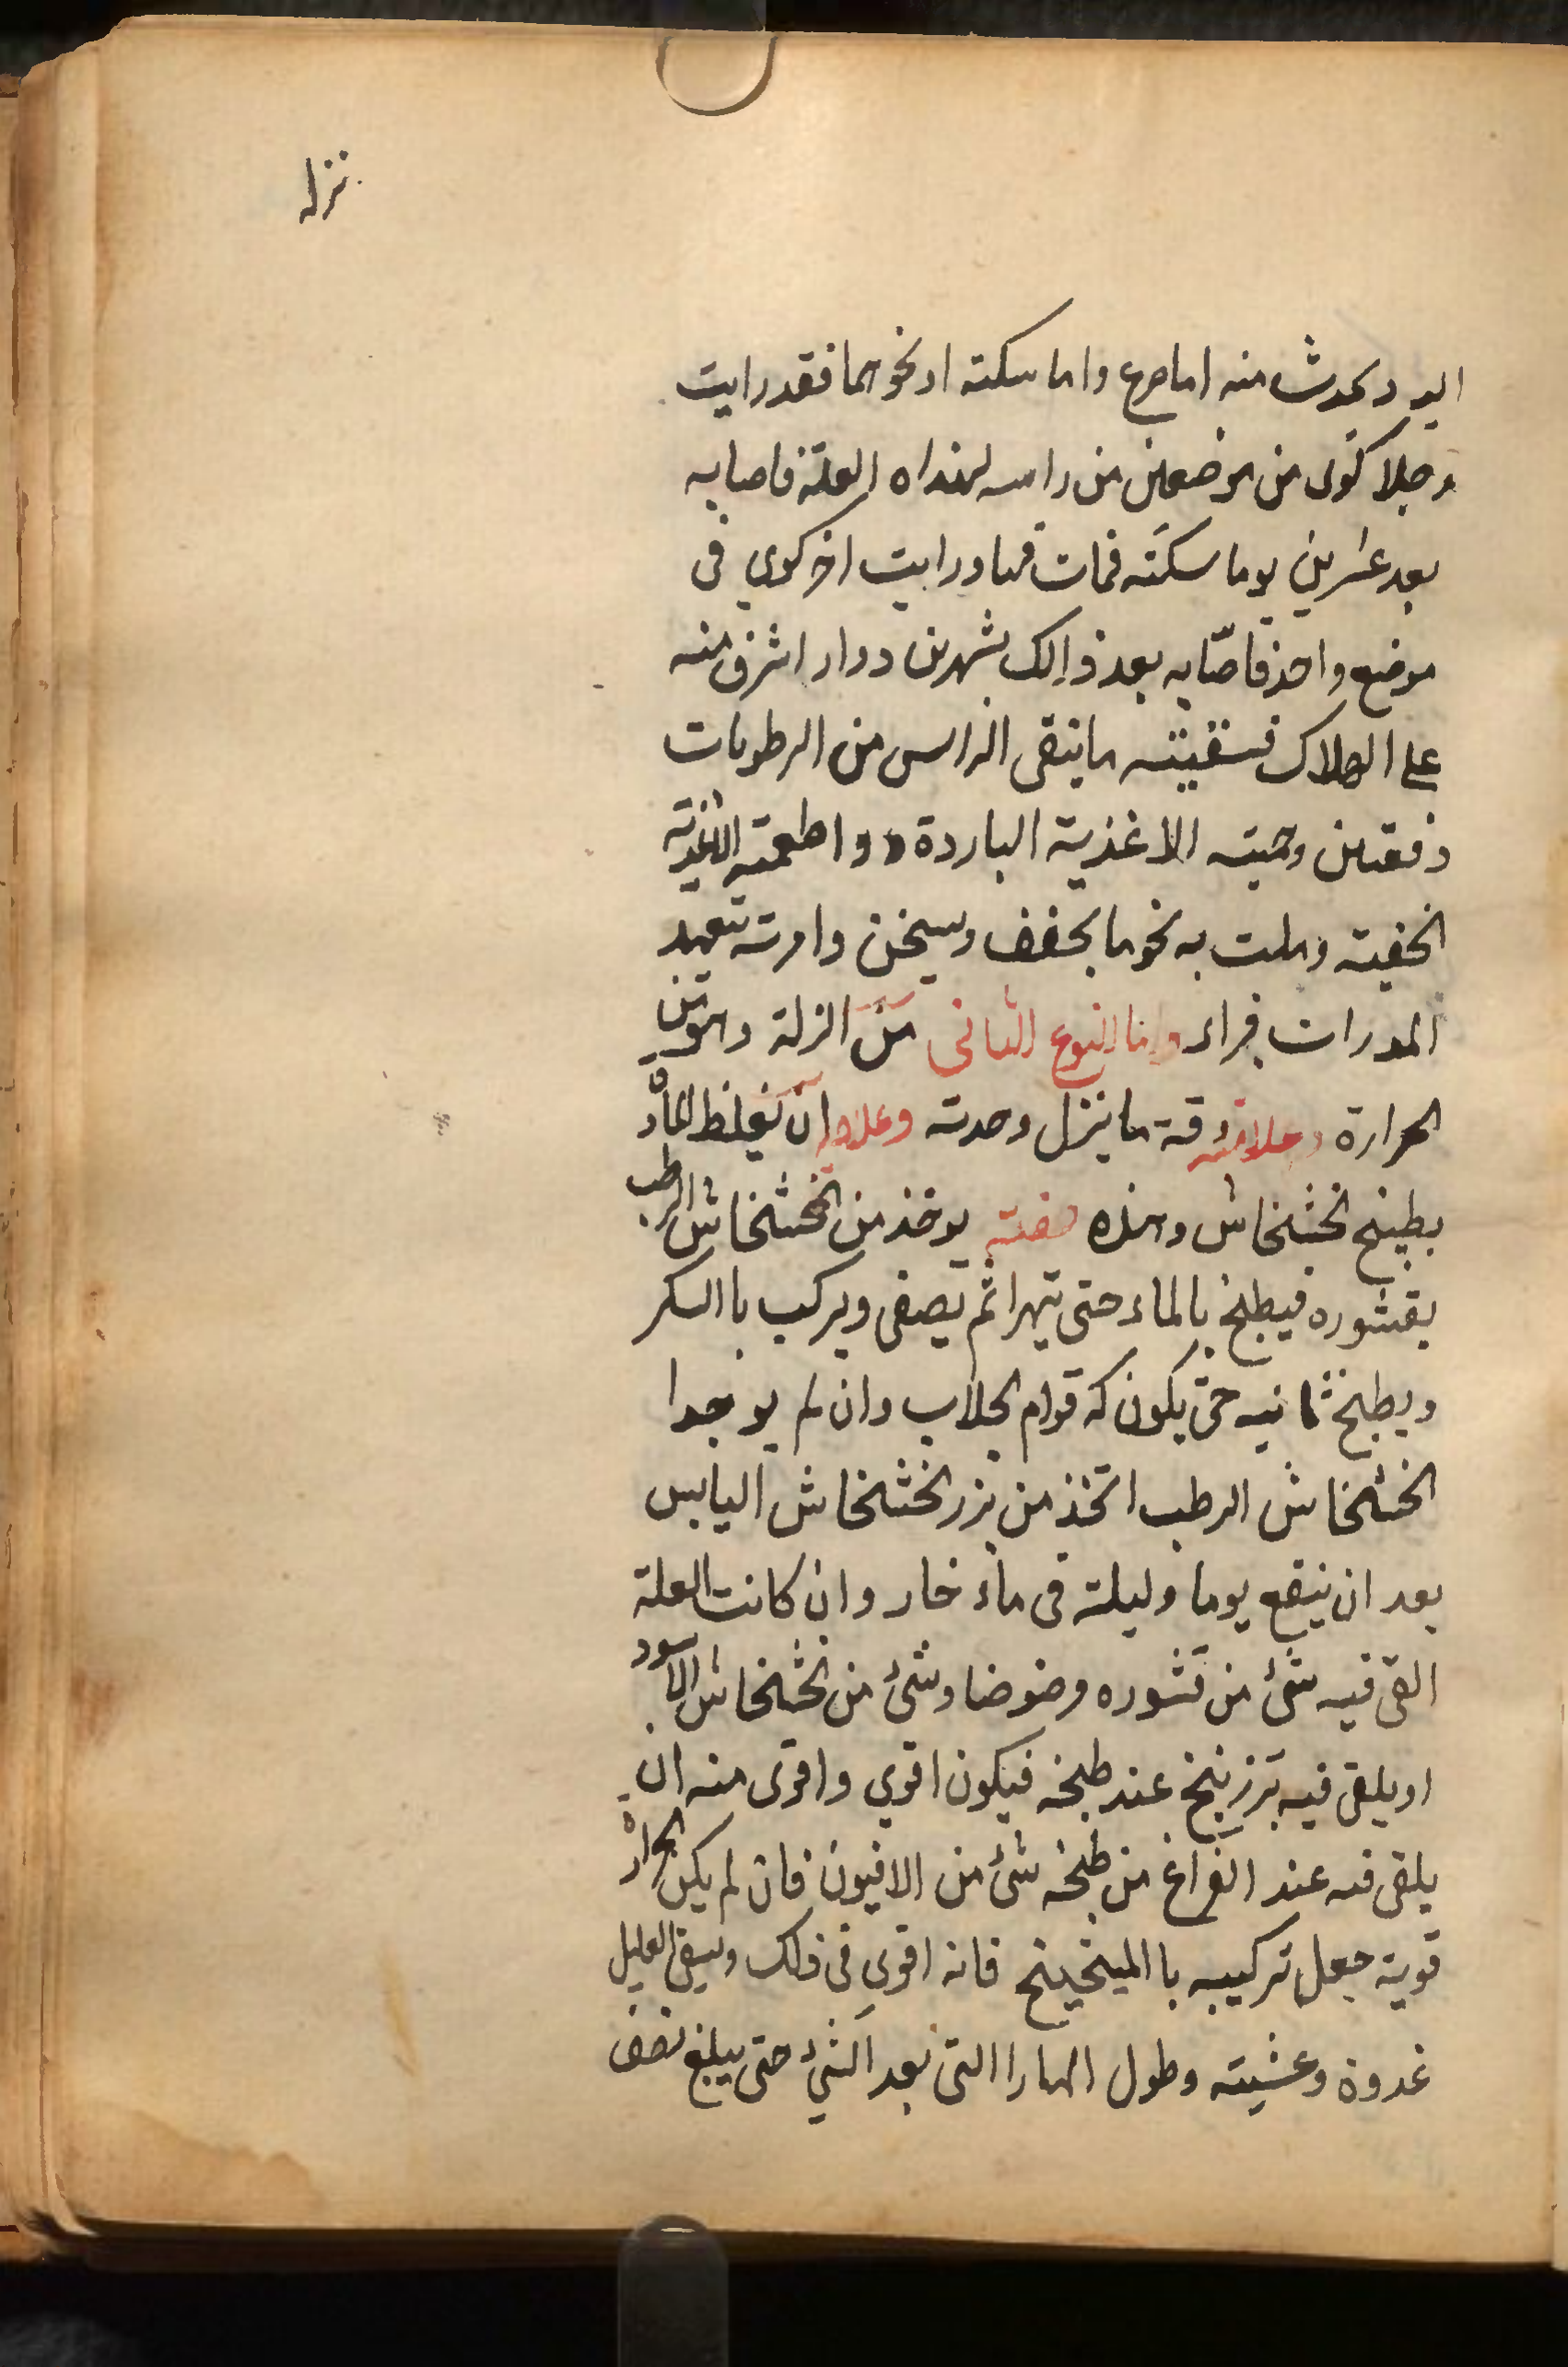 نزله
اليه ويحدث منه اما صرع واما سكته او نحوهما فقد رايت
رجلا كوى من موضعين من راسه لهذاه العلة فاصابه
بعد عشرين يوما سكته فمات فيها ورايت اخر كوي فى
موضع واحد فاصّابه بعد ذالك بشهرين دوار اشرف منه
على الهلاك فسقيته ما ينقى الراس من الرطوبات
دفعتين وحميته الاغذية الباردة واطعمته الاغذية
الخفيته وملت به نحو ما يجفف ويسخن وامرته بتعهد
المدرات فبراء واما النوع الثانى من النزلة وهو من
الحرارة وعلامته رقة ما ينزل وحدته وعلاجه ان يغلظ المادة
بطبيخ الخشخاش وهذه صفته يوخذ من الخشخاش الرطب
بقشوره فيطبخ بالماء حتى يتهرا ثم يصفى ويركب باالسكر
ويطبخ ثانيه حتى يكون له قوام الجلاب وان لم يوجدا
الخشخاش الرطب اتخذ من بزر الخشخاش اليابس
بعد ان ينقع يوما وليلة فى ماء حار وان كانت العلة
القى فيه شئ من قشوره مرضوضا وشئ من الخشخاش الاسود
او يلقى فيه بزر بنج عند طبخه فيكون اقوي واقوى منه ان
يلقى فيه عند الفراغ من طبخه شئ من الافيون فان لم يكن الحرارة
قوية جعل تركيبه باالميبختج فانه اقوي فى ذلك ويسقى العليل
غدوة وعشيته وطول النهار االتى بعد الشئ حتى يبلغ نصف